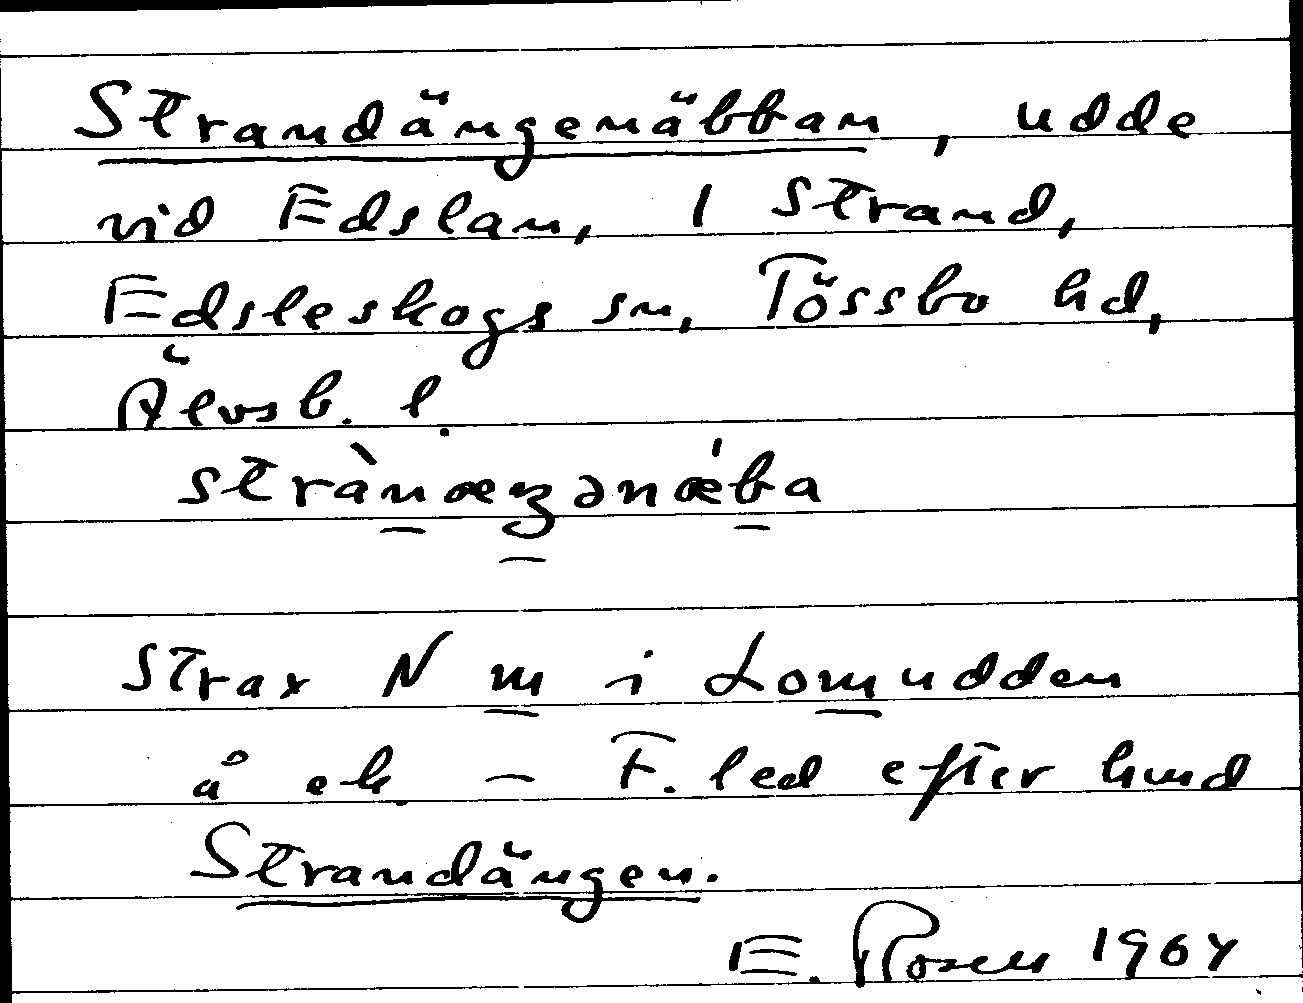 Strandängenäbban, udde
vid Edslan, 1 Strand,
Edsleskogs sn, Tössbo hd,
Älvsb. l.
strànæŋənǽba
Strax N m i Lomudden
å ek. – F. led efter hmd
Strandängen.
E. Rosell 1964